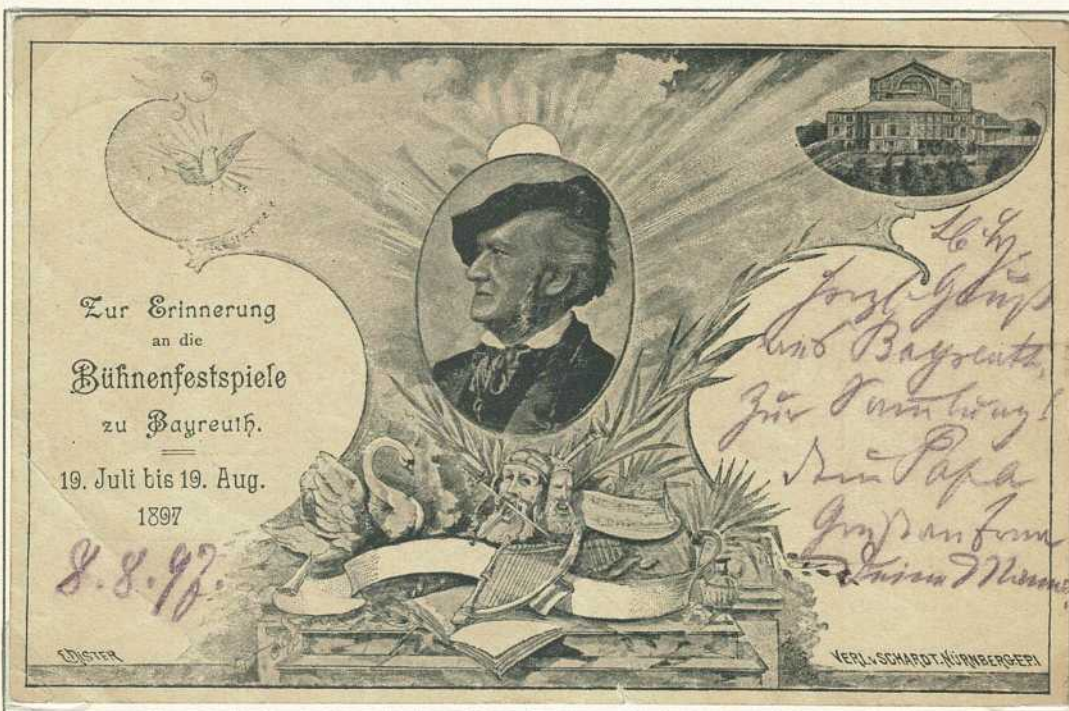 Zur Erinnerung
an die
Bühnenfestspiele
zu Bayreuth.
19. Juli bis 19. Aug.
1897
8.8.97.
Herzl. Gruß
aus Bayreuth,
zur Samlung!
Dein Papa
Gruß an
Deine
E. NISTER
VERL. v. SCHARDT. NÜRNBERG